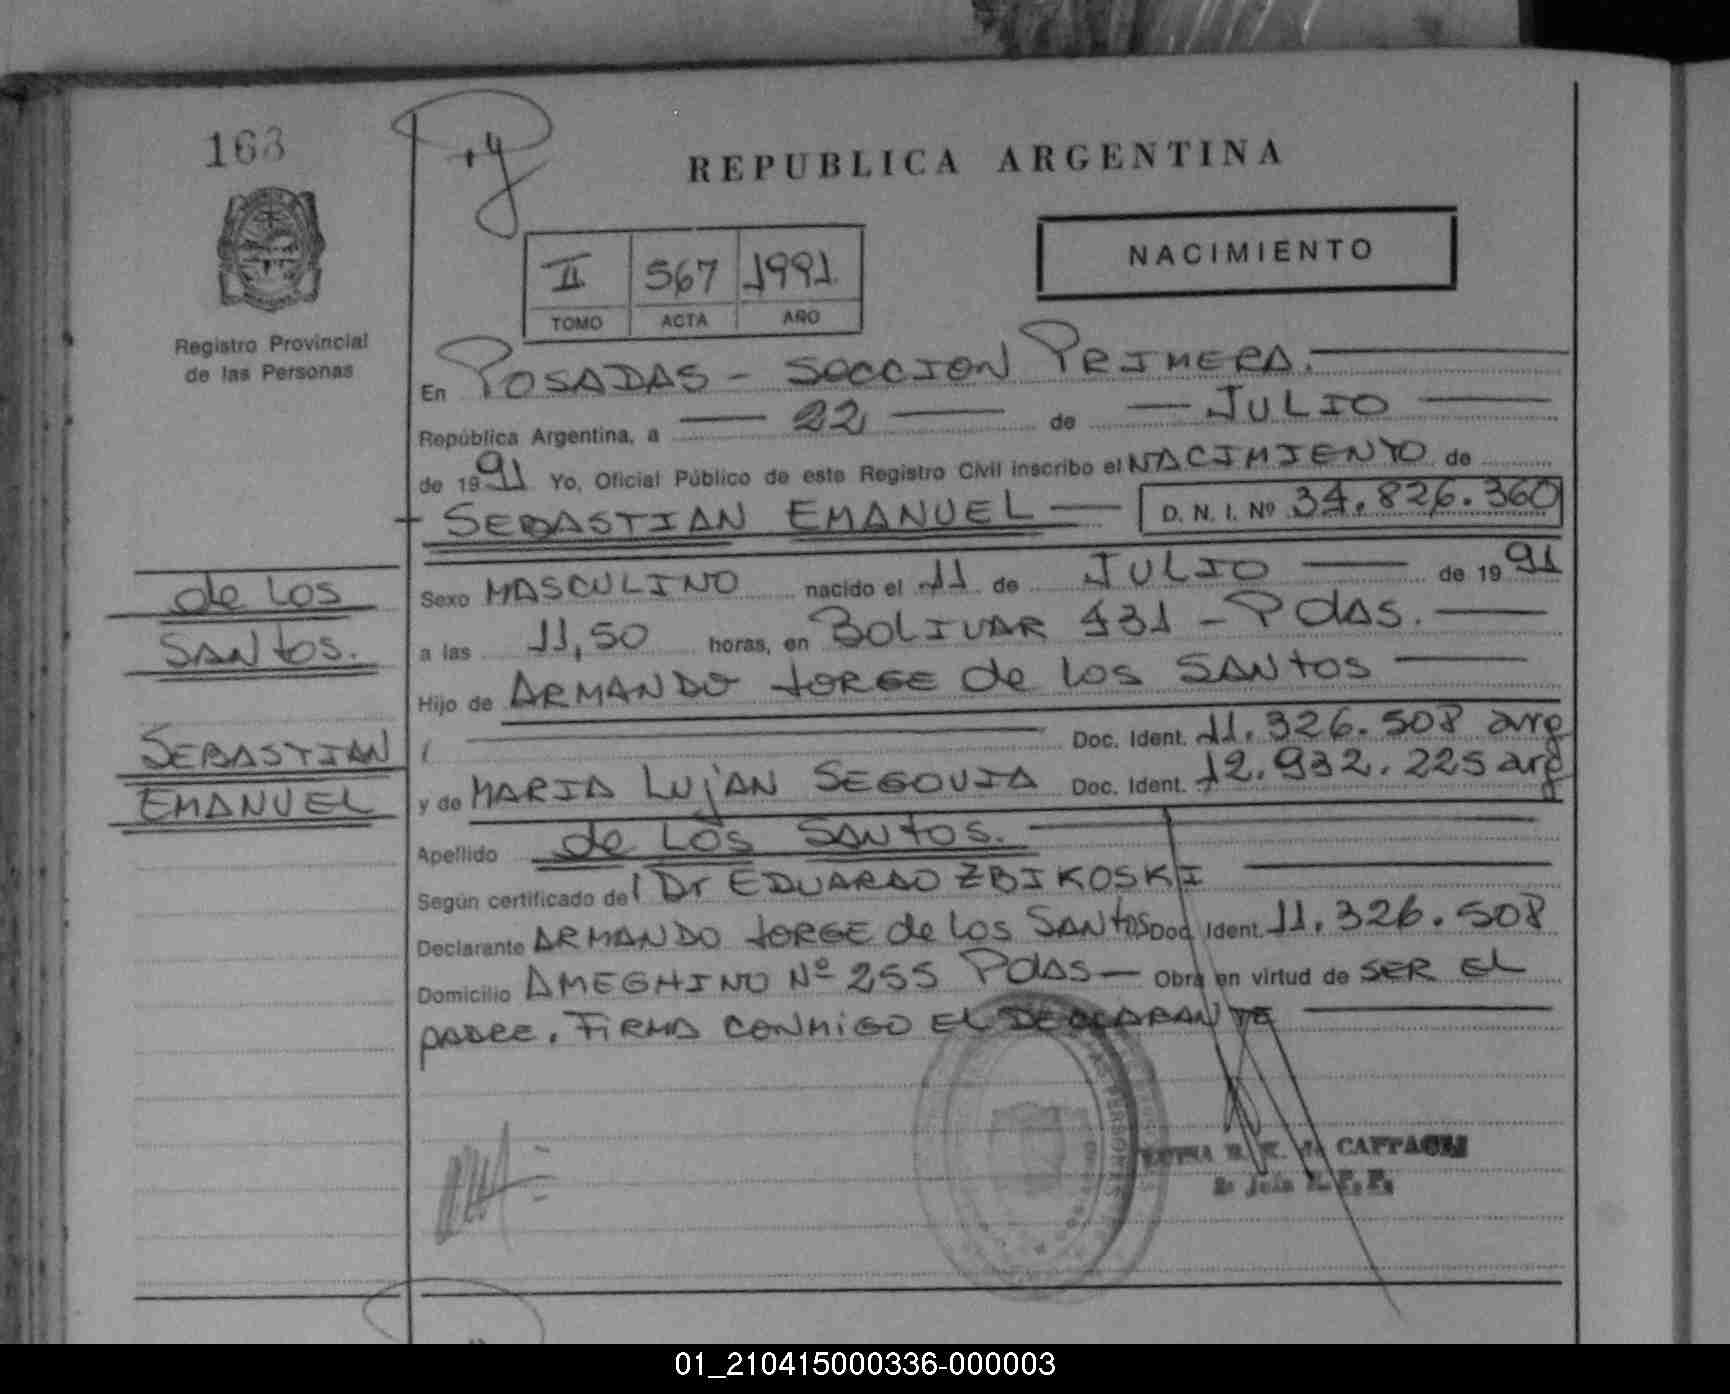 163
REPUBLICA ARGENTINA
NACIMIENTO
II 567 1991
TOMO ACTA AÑO
Registro Provincial
de las Personas
En POSADAS - SECCION PRIMERA.
República Argentina, a 22 de JULIO
de 1991 Yo, Oficial Público de este Registro Civil inscribo el NACIMIENTO de
SEBASTIAN EMANUEL D. N. I. Nº 34.826.360
de Los
SANtos.
SEBASTIAN
EMANUEL
Sexo MASCULINO nacido el 11 de JULIO de 1991
a las 11,50 horas, en BOLIVAR 431 - PdAS.
Hijo de ARMANDO JORGE de los SANtos
Doc. Ident. 11.326.508 arg
y de MARIA LUjAN SEGOVIA Doc. Ident. 12.932.225 arg
Apellido de Los SANtos.
Según certificado de Dr EDUARDO ZBIKOSKI
Declarante ARMANDO JORGE de los SANtos Doc. Ident. 11.326.508
Domicilio AMEGHINO Nº 255 PdAS— Obra en virtud de SER EL
PADRE. FIRMA CONMIGO EL DECLARANTE
CAFFAGNI
01_210415000336-000003